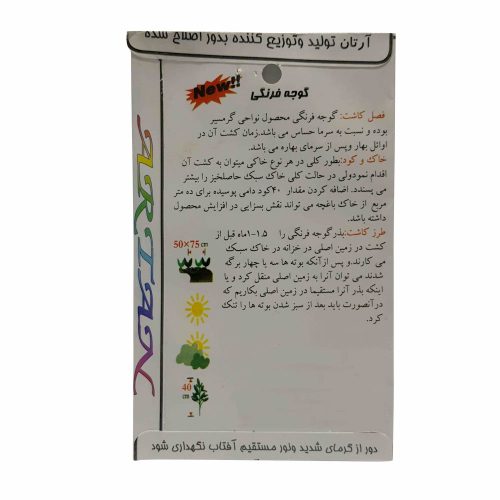 آرتان تولید وتوزیع کننده بذور اصلاح شده
New!!
گوجه فرنگی
فصل کاشت: گوجه فرنگی محصول نواحی گرمسیر
بوده و نسبت به سرما حساس می باشد.زمان کشت آن در
اوائل بهار وپس از سرمای بهاره می باشد.
خاک و کود:بطور کلی در هر نوع خاکی میتوان به کشت آن
اقدام نمودولی در حالت کلی خاک سبک حاصلخیز را بیشتر
می پسندد. اضافه کردن مقدار ۴۰کود دامی پوسیده برای ده متر
مربع از خاک باغچه می تواند نقش بسزایی در افزایش محصول
داشته باشد.
طرز کاشت:بذر گوجه فرنگی را ۱.۵-۱ماه قبل از
کشت در زمین اصلی در خزانه در خاک سبک
می کارند.و پس ازآنکه بوته ها سه یا چهار برگه
شدند می توان آنرا به زمین اصلی منقل کرد و یا
اینکه بذر آنرا مستقیما در زمین اصلی بکاریم که
درآنصورت باید بعد از سبز شدن بوته ها را تنک
کرد.
50×75 cm
40
cm
ARTAN
دور از گرمای شدید ونور مستقیم آفتاب نگهداری شود